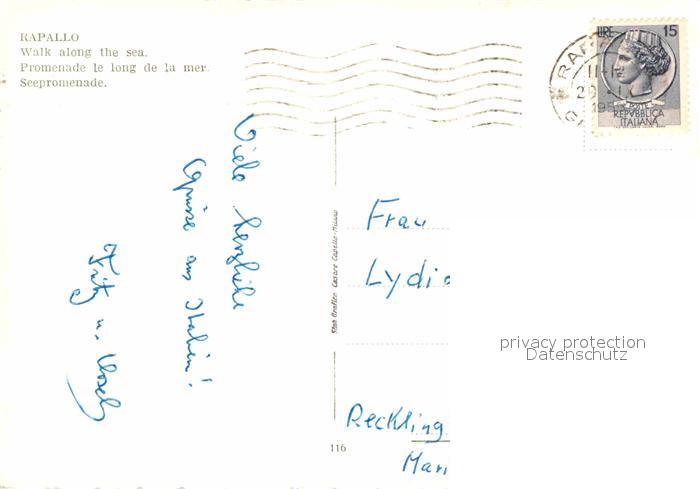 RAPALLO
Walk along the sea.
Promenade le long de la mer.
Seepromenade.
LIRE 15
POSTE
REPVBBLICA
ITALIANA
Viele herzliche
Grüsse aus Italien!
Fritz u.
Stab. Grafico Cesare Capello - Milano
Frau
Lydia
privacy protection
Datenschutz
Reckling
Mari
116